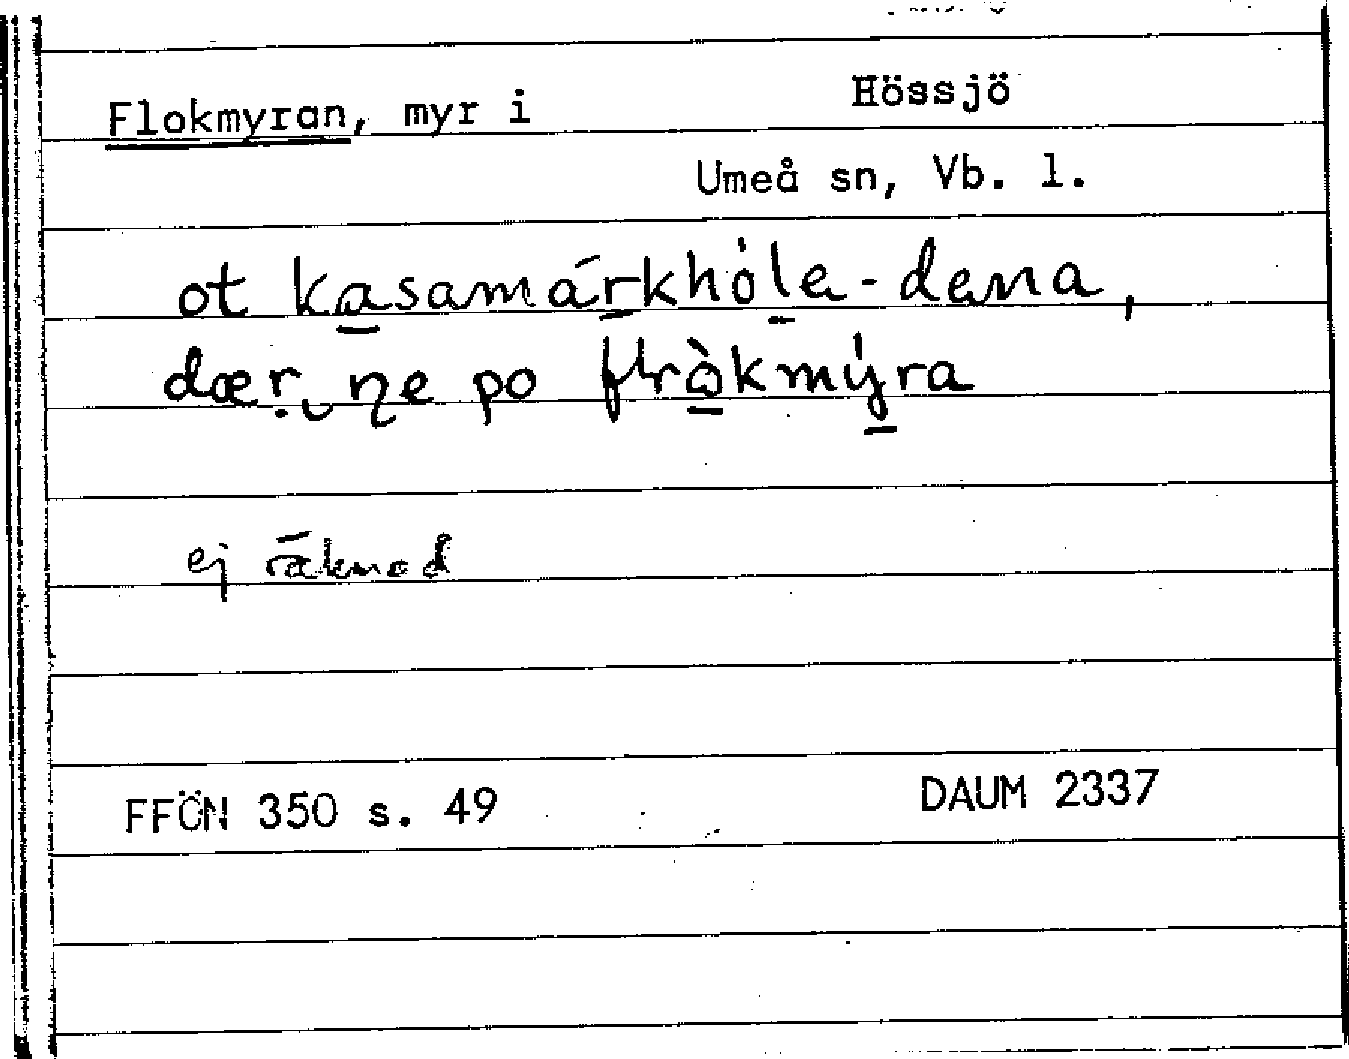 Flokmyran, myr i Hössjö
Umeå sn, Vb. l.
ot kasamárkhóla-dena,
dær ne po flòkmýra
ej räknad
FFÖN 350 s. 49 DAUM 2337